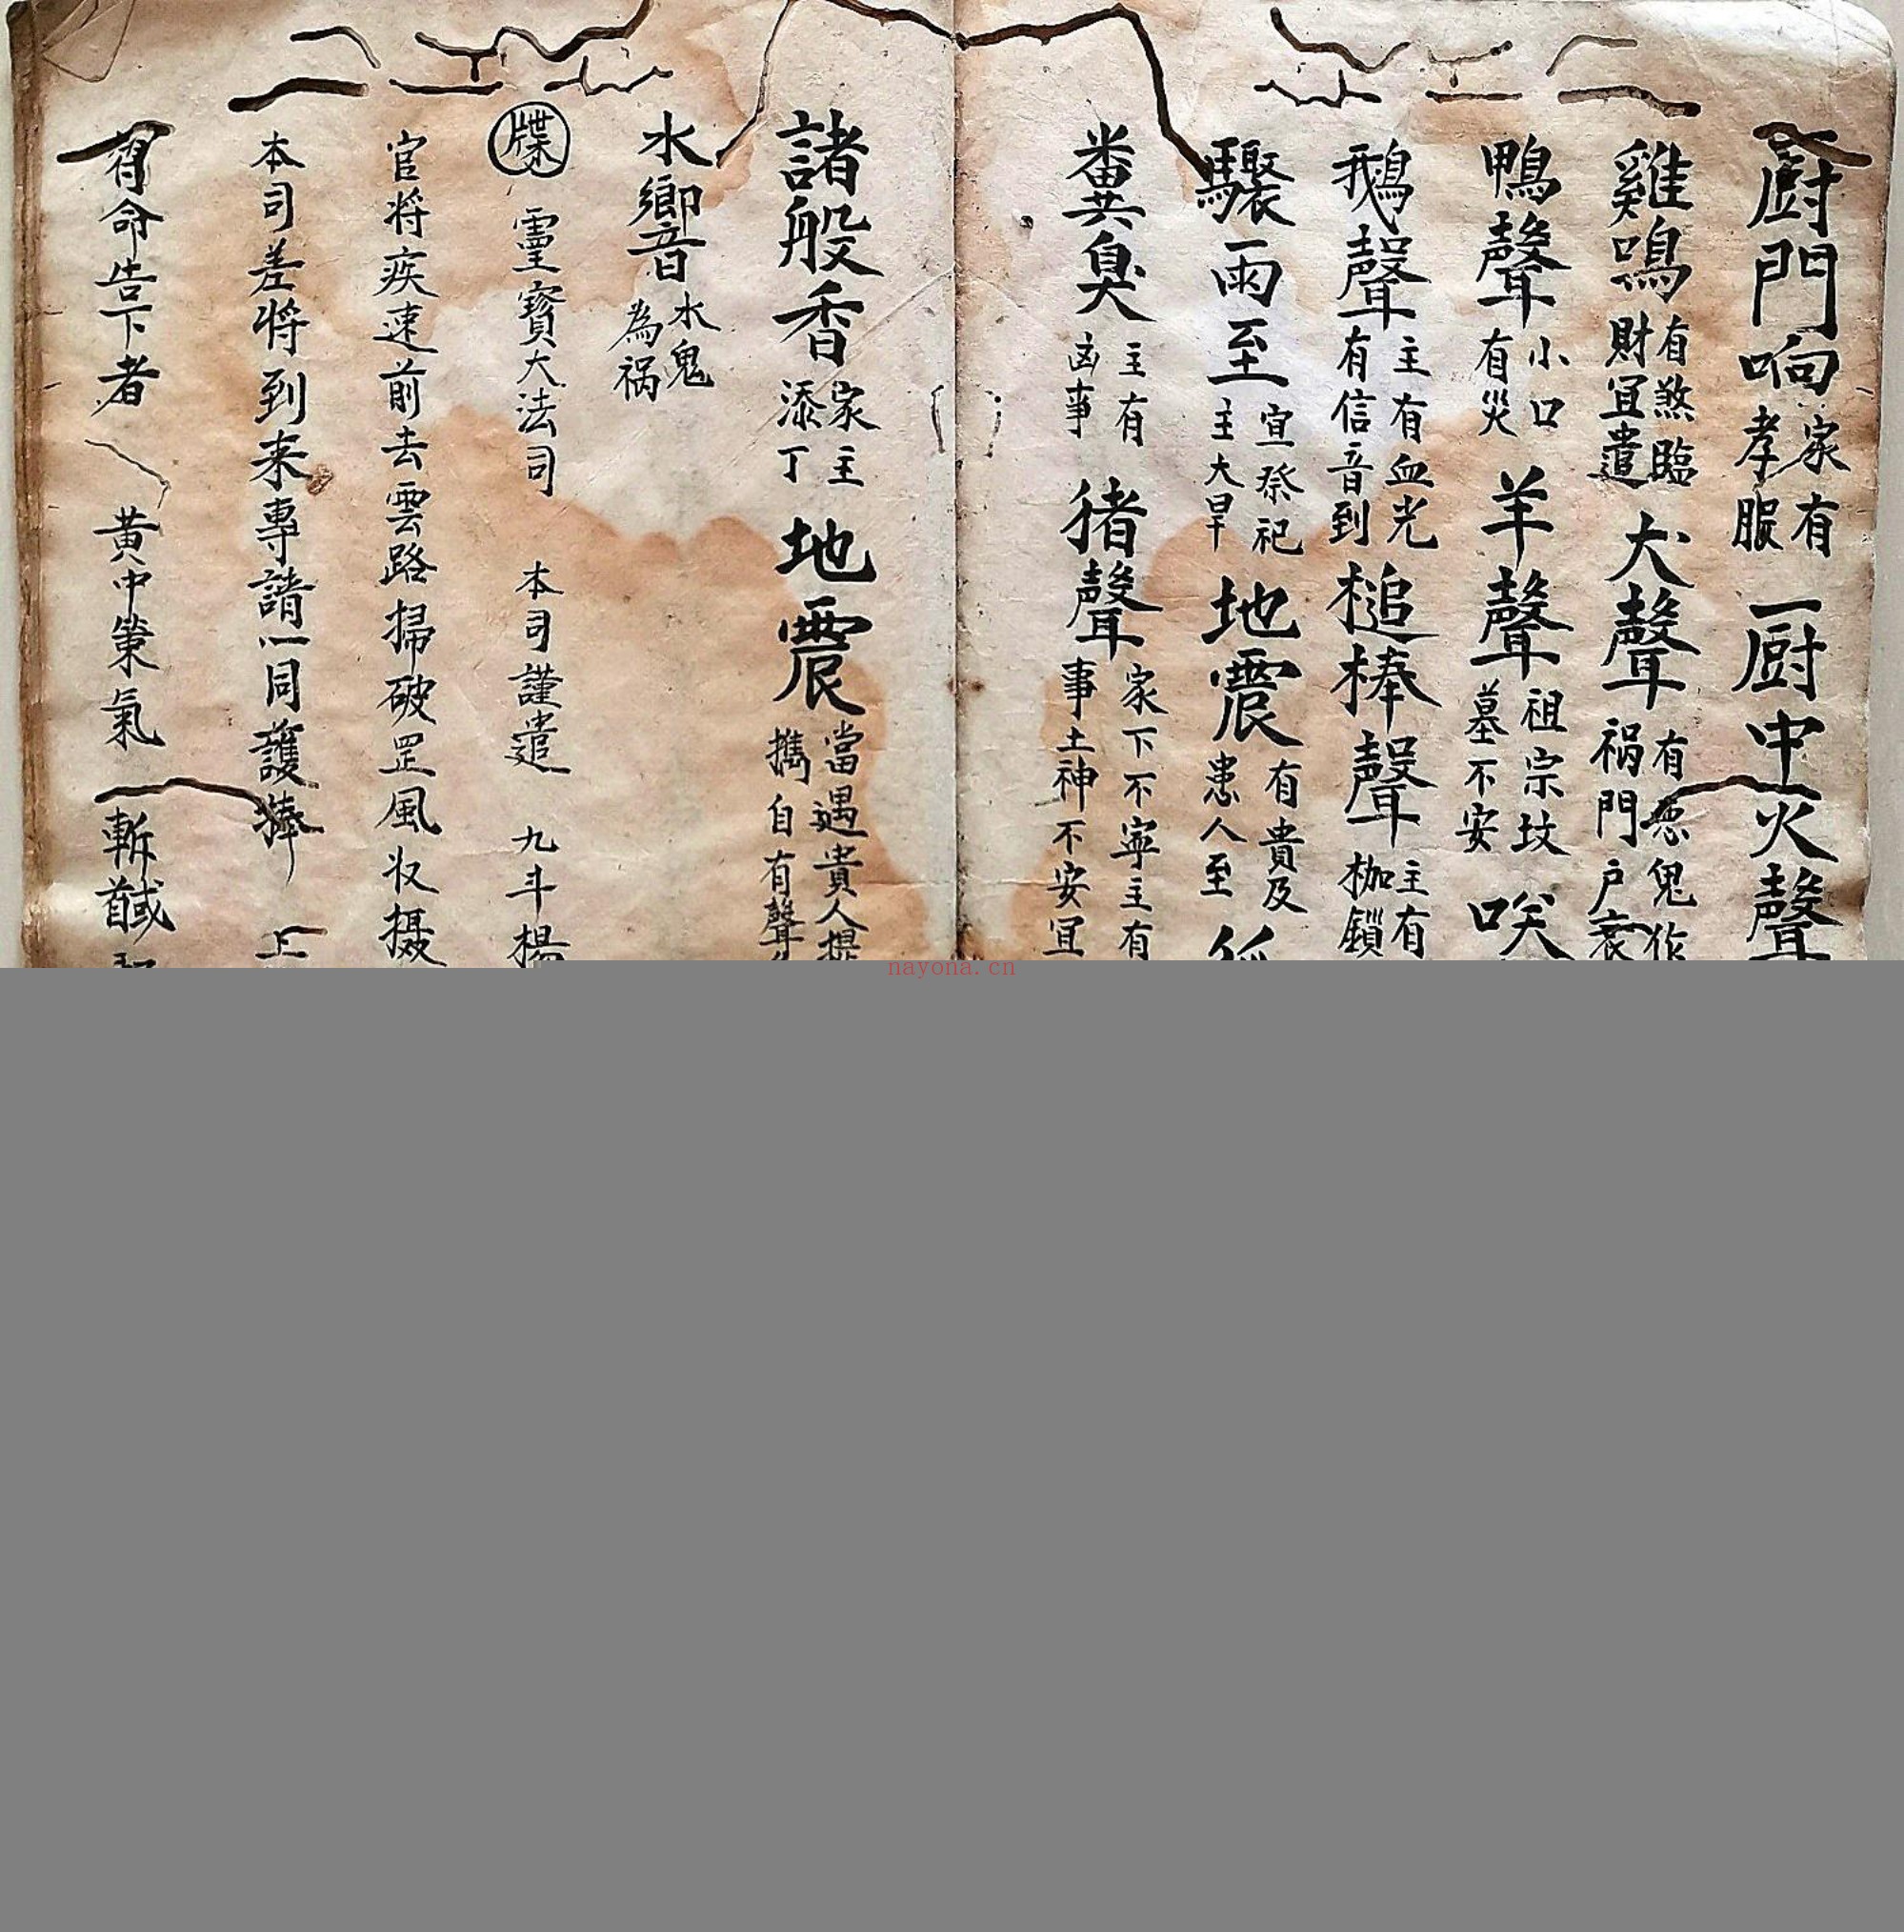 厨門响 家有孝服 一厨中火聲
雞鳴 有煞臨財宜遣 犬聲 有惡鬼作祸門户衰
鴨聲 小口有災 羊聲 祖宗坟墓不安 咲
鵝聲 主有血光有信音到 槌棒聲 主有枷鎖
驟雨至 宜祭祀主大旱 地震 有貴及患人至
糞臭 主有凶事 猪聲 家下不寧主有事土神不安宜
諸般香 家主添丁 地震 當遇貴人提携自有聲
水響音 水鬼為祸
牒 靈寶大法司 本司謹遣 九斗楊
官将疾速前去雲路掃破罡風收摄
本司差将到来專請一同護捧 上
有命告下者 黄中秉氣 斬馘
nayona.cn